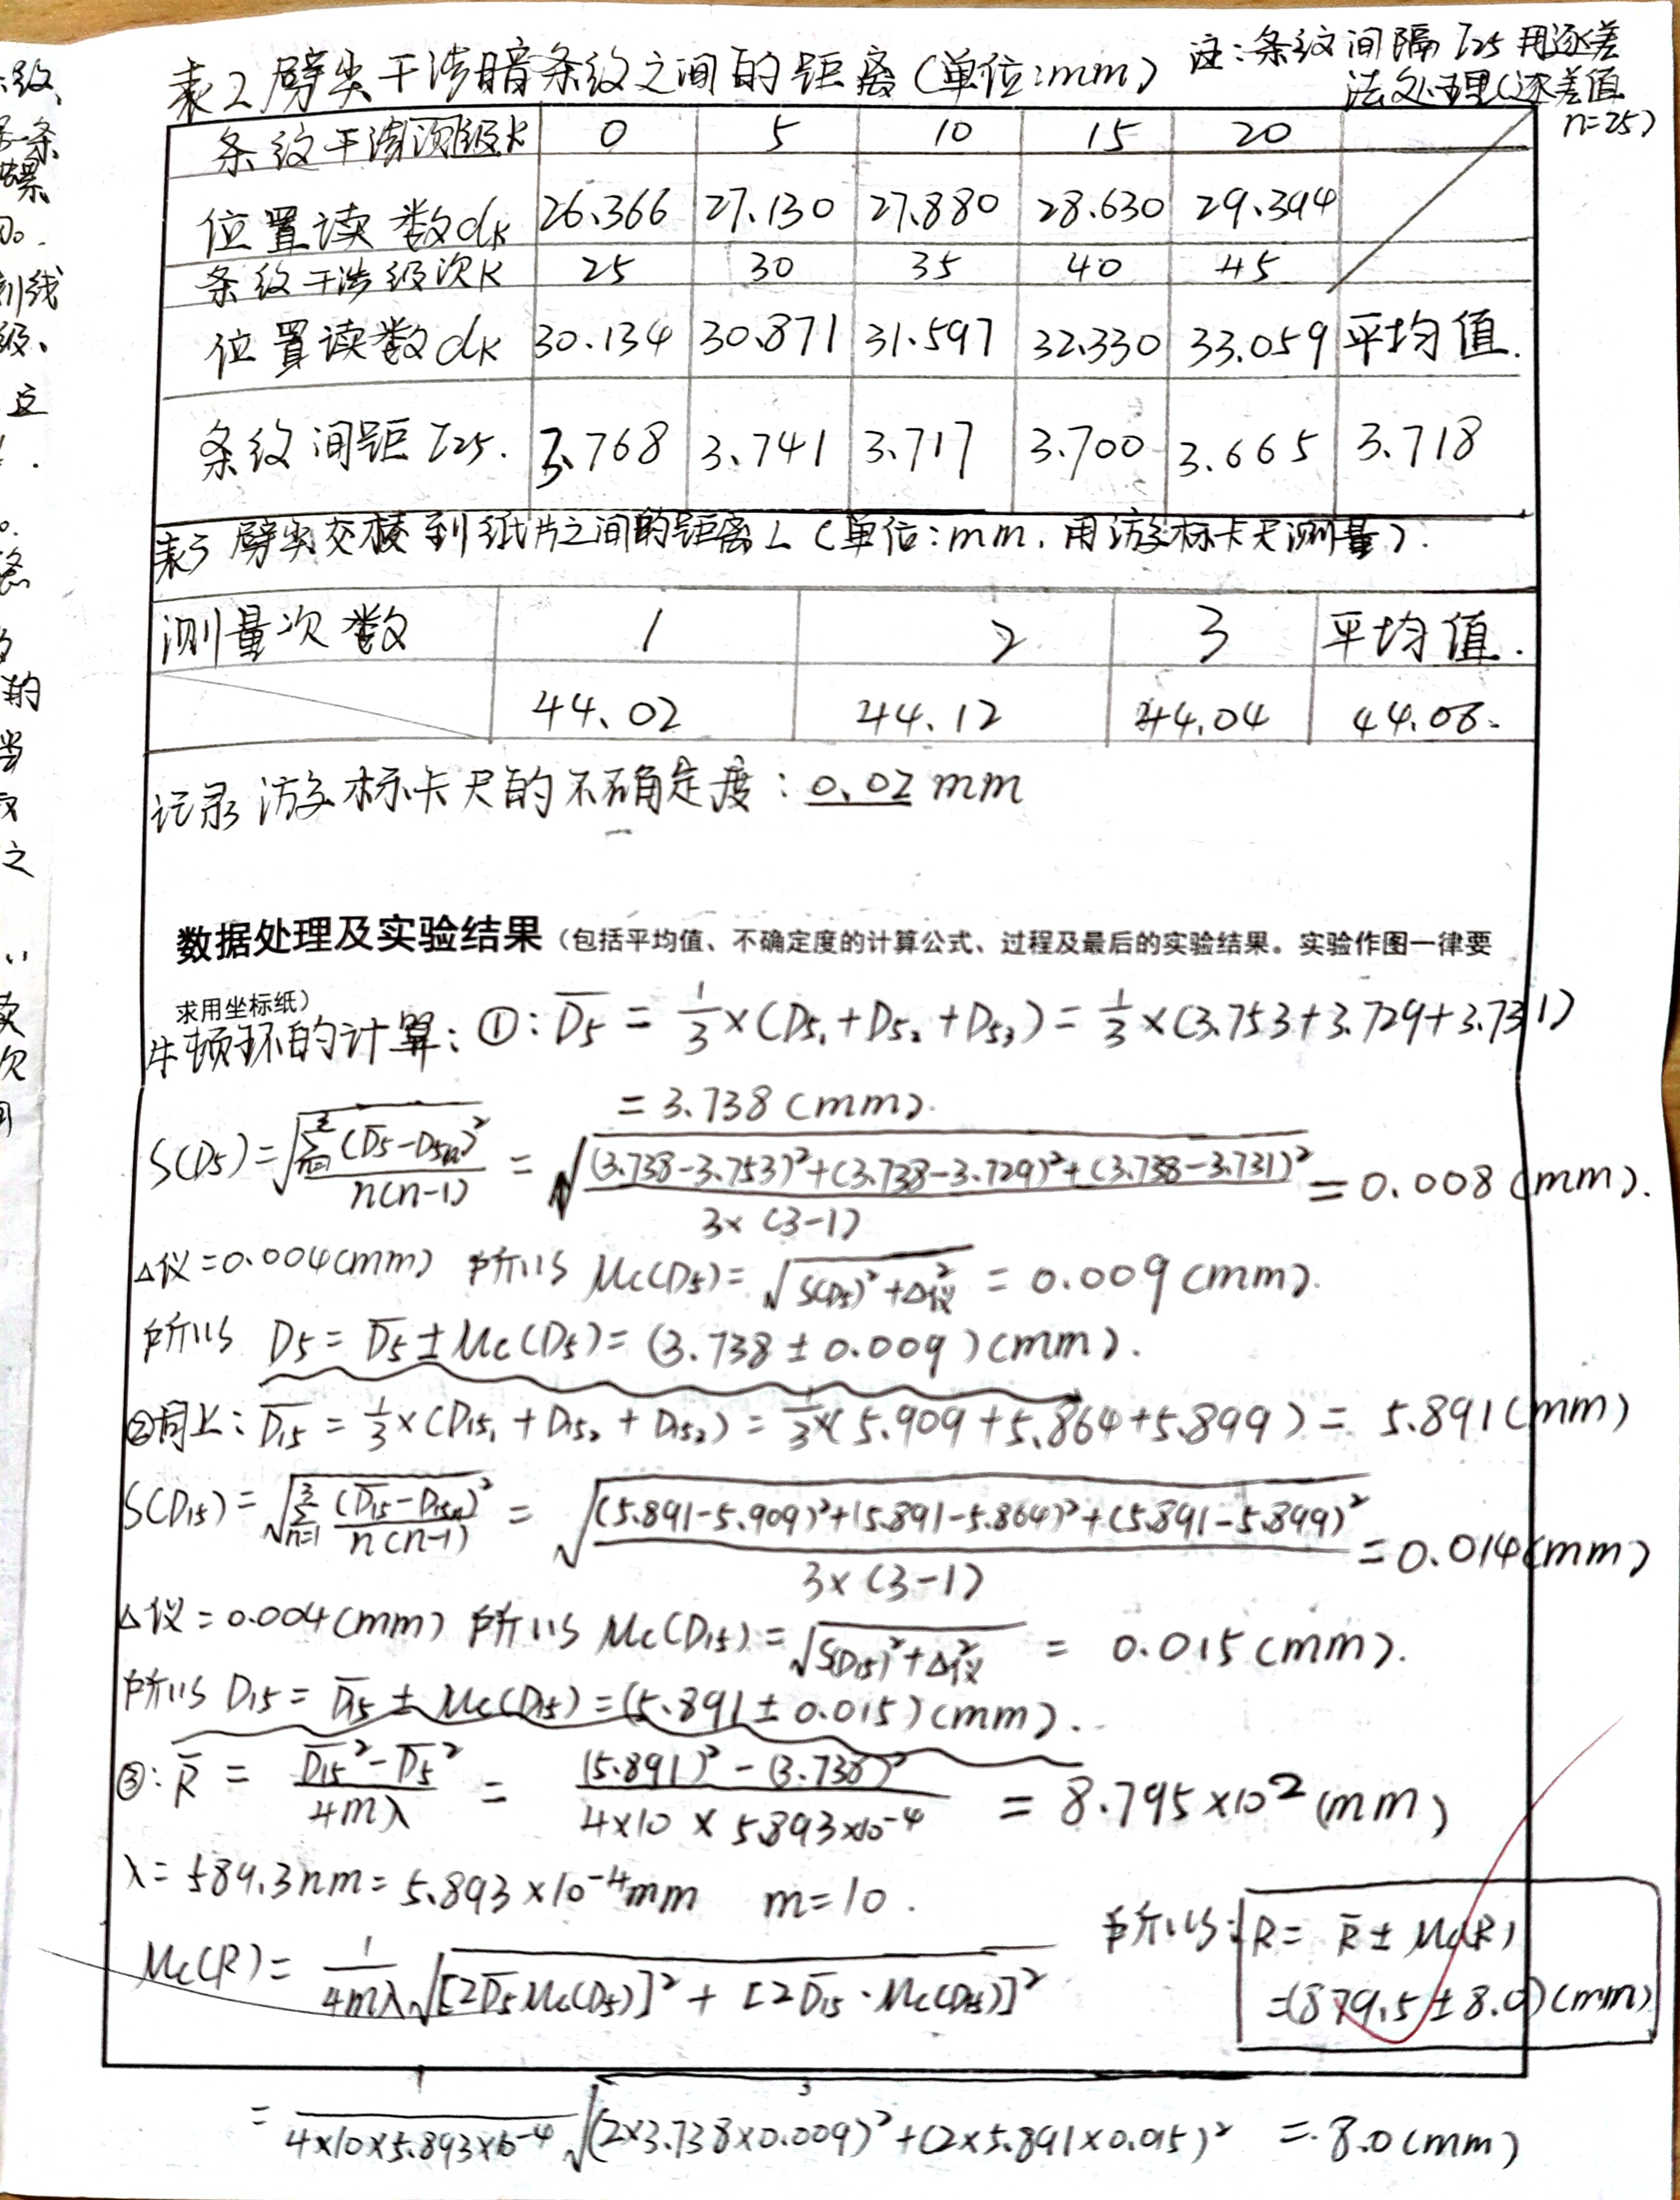 表2 劈尖干涉暗条纹之间的距离(单位:mm)
注:条纹间隔 l25 用逐差
法处理(逐差值
n=25)
条纹干涉级k 0 5 10 15 20
位置读数dk 26.366 27.130 27.880 28.630 29.394
条纹干涉级次K 25 30 35 40 45
位置读数dk 30.134 30.871 31.597 32.330 33.059 平均值.
条纹间距 l25. 3.768 3.741 3.717 3.700 3.665 3.718
表3 劈尖交棱到纸片之间的距离L(单位:mm, 用游标卡尺测量).
测量次数 1 2 3 平均值.
44.02 44.12 44.04 44.06.
记录游标卡尺的不确定度: 0.02 mm
数据处理及实验结果(包括平均值、不确定度的计算公式、过程及最后的实验结果。实验作图一律要
求用坐标纸)
牛顿环的计算: ①: D̅5 = 1/3 ×(D5₁+D5₂+D5₃)= 1/3 ×(3.753+3.729+3.731)
= 3.738 (mm).
S(D5)=√(Σ(D̅5-D5n)²/n(n-1)) = √((3.738-3.753)²+(3.738-3.729)²+(3.738-3.731)²/3×(3-1)) = 0.008 (mm).
Δ仪=0.004(mm) 所以 Mc(D5)=√(S(D5)²+Δ仪²) = 0.009 (mm).
所以 D5 = D̅5 ± Mc(D5)= (3.738 ± 0.009)(mm).
②同上: D̅15 = 1/3 ×(D15₁ + D15₂ + D15₂) = 1/3×(5.909+5.864+5.899) = 5.891(mm)
S(D15) = √(Σ³n=1 (D̅15-D15n)²/n(n-1)) = √((5.891-5.909)²+(5.891-5.864)²+(5.891-5.899)²/3×(3-1)) = 0.014(mm)
Δ仪=0.004(mm) 所以 Mc(D15)=√(S(D15)²+Δ仪²) = 0.015(mm).
所以 D15 = D̅15 ± Mc(D15)=(5.891±0.015)(mm).
③: R̅ = D̅15²-D̅5²/4mλ = (5.891)²-(3.738)²/4×10×5.893×10⁻⁴ = 8.795×10² (mm)
λ=589.3nm=5.893×10⁻⁴mm m=10.
Mc(R)= 1/4mλ √([2D̅5Mc(D5)]²+[2D̅15·Mc(D15)]²)
所以: R= R̅± Mc(R)
=(879.5±8.0)(mm)
= 1/4×10×5.893×10⁻⁴ √((2×3.738×0.009)²+(2×5.891×0.015)²) = 8.0(mm)